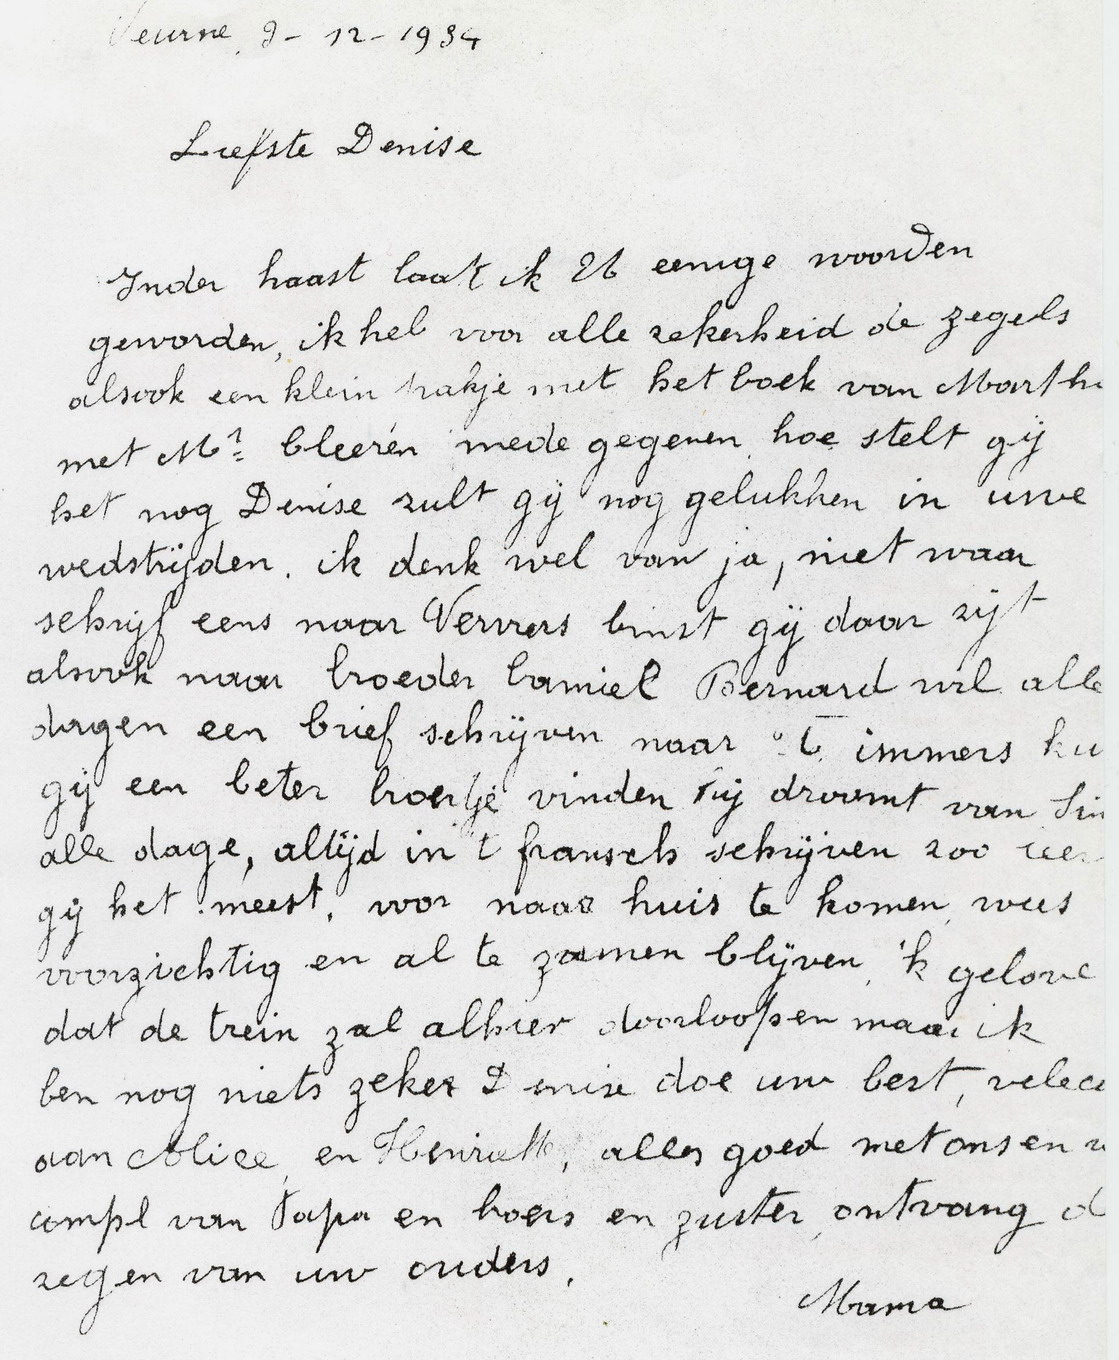 Veurne, 9 - 12 - 1934
Liefste Denise
Inder haast laat ik U eenige woorden
geworden, ik heb voor alle zekerheid de zegels
alsook een klein pakje met het boek van Marth
met Mr. Cleerén mede gegeven, hoe stelt gij
het nog Denise zult gij nog gelukken in uwe
wedstrijden. ik denk wel van ja, niet waar
schrijf eens naar Ververs binst gij daar zijt
alsook naar broeder Camiel Bernard wil alle
dagen een brief schrijven naar U immers ku
gij een beter broertje vinden hij droomt van Sin
alle dage, altijd in 't fransch schrijven zoo leer
gij het meest, voor naar huis te komen, wees
voorzichtig en al te zamen blijven, 'k gelove
dat de trein zal alhier doorloopen maar ik
ben nog niets zeker Denise doe uw best, velec
aan Alice, en Henriette, alles goed met ons en
compl van Papa en boers en zuster, ontvang d
zegen van uw ouders,
Mama